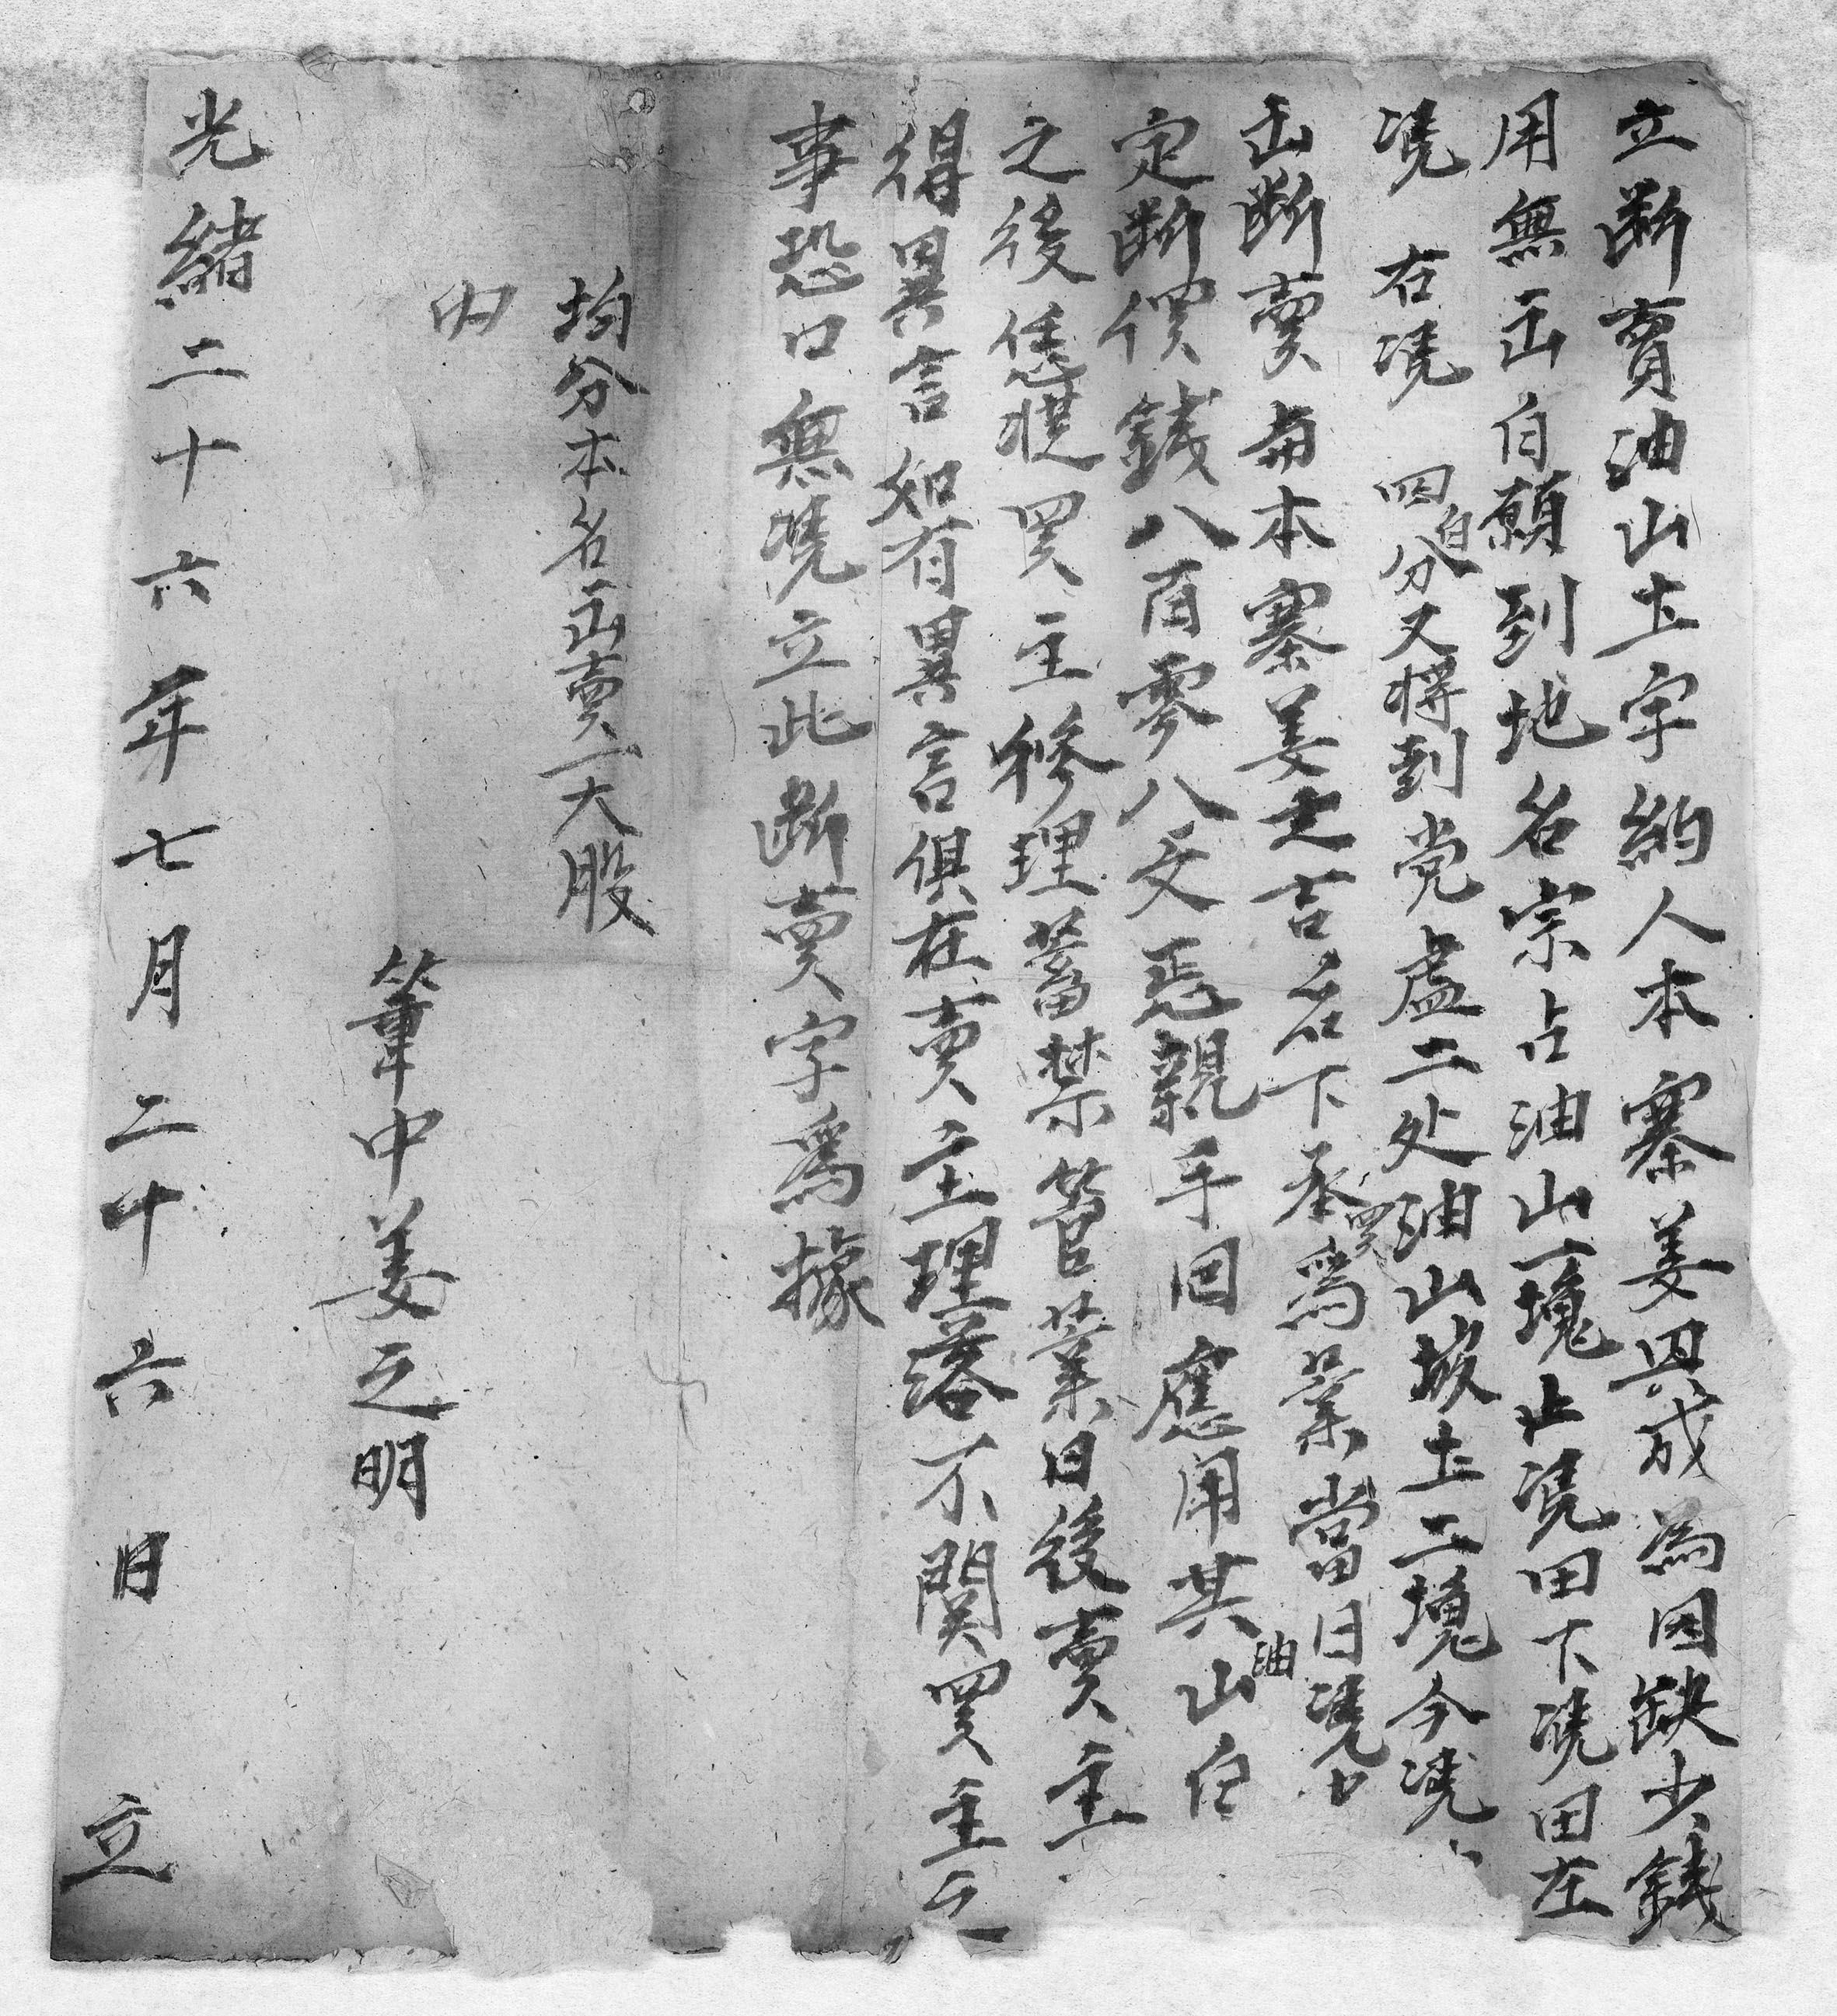 立断賣油山土字約人本寨姜興成為因缺少錢
用無出自願到地名宗占油山一塊止凴田下凴田左
凴右凴四白分又將到党盧二处油山坡土二塊今凴
出断賣與本寨姜之吉名下承買為業當日凴中
定断價錢八百零八文恁親手回應用其油山自
之後恁凴買主修理蓄禁管業日後賣主
得異言如有異言俱在賣主理落不関買主之
事恐口無凴立此断賣字為據
均分本名出賣一大股
内
筆中姜之明
光緒二十六年七月二十六日立